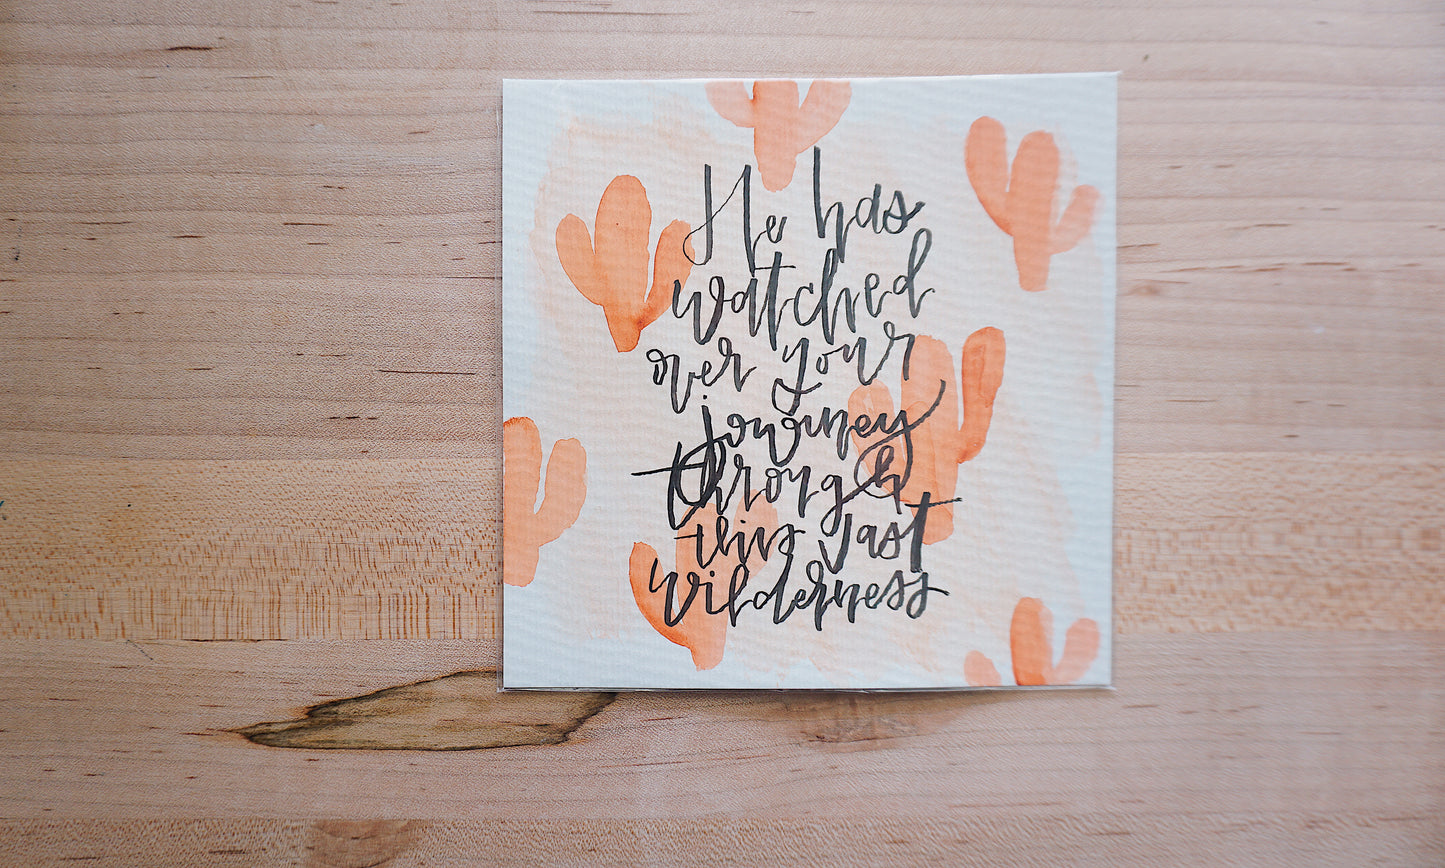 He has
watched
over your
journey
through
this vast
wilderness